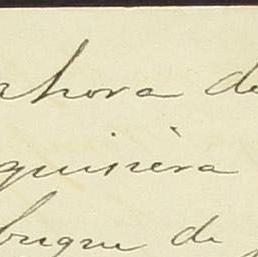 ahora de
quisièra
buque de